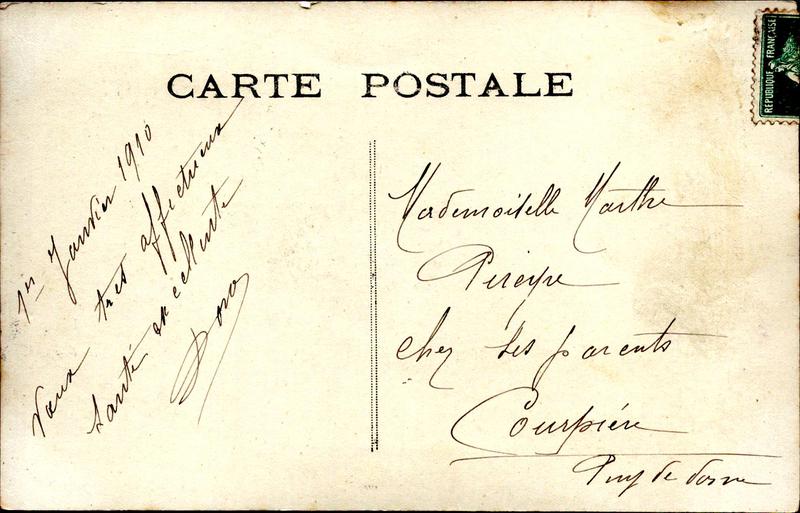 CARTE POSTALE
REPUBLIQUE FRANÇAISE
1er Janvier 1910
Vœux très affectueux
Santé excellente
Mademoiselle Marthe
chez ses parents
Courpière
Puy de dome